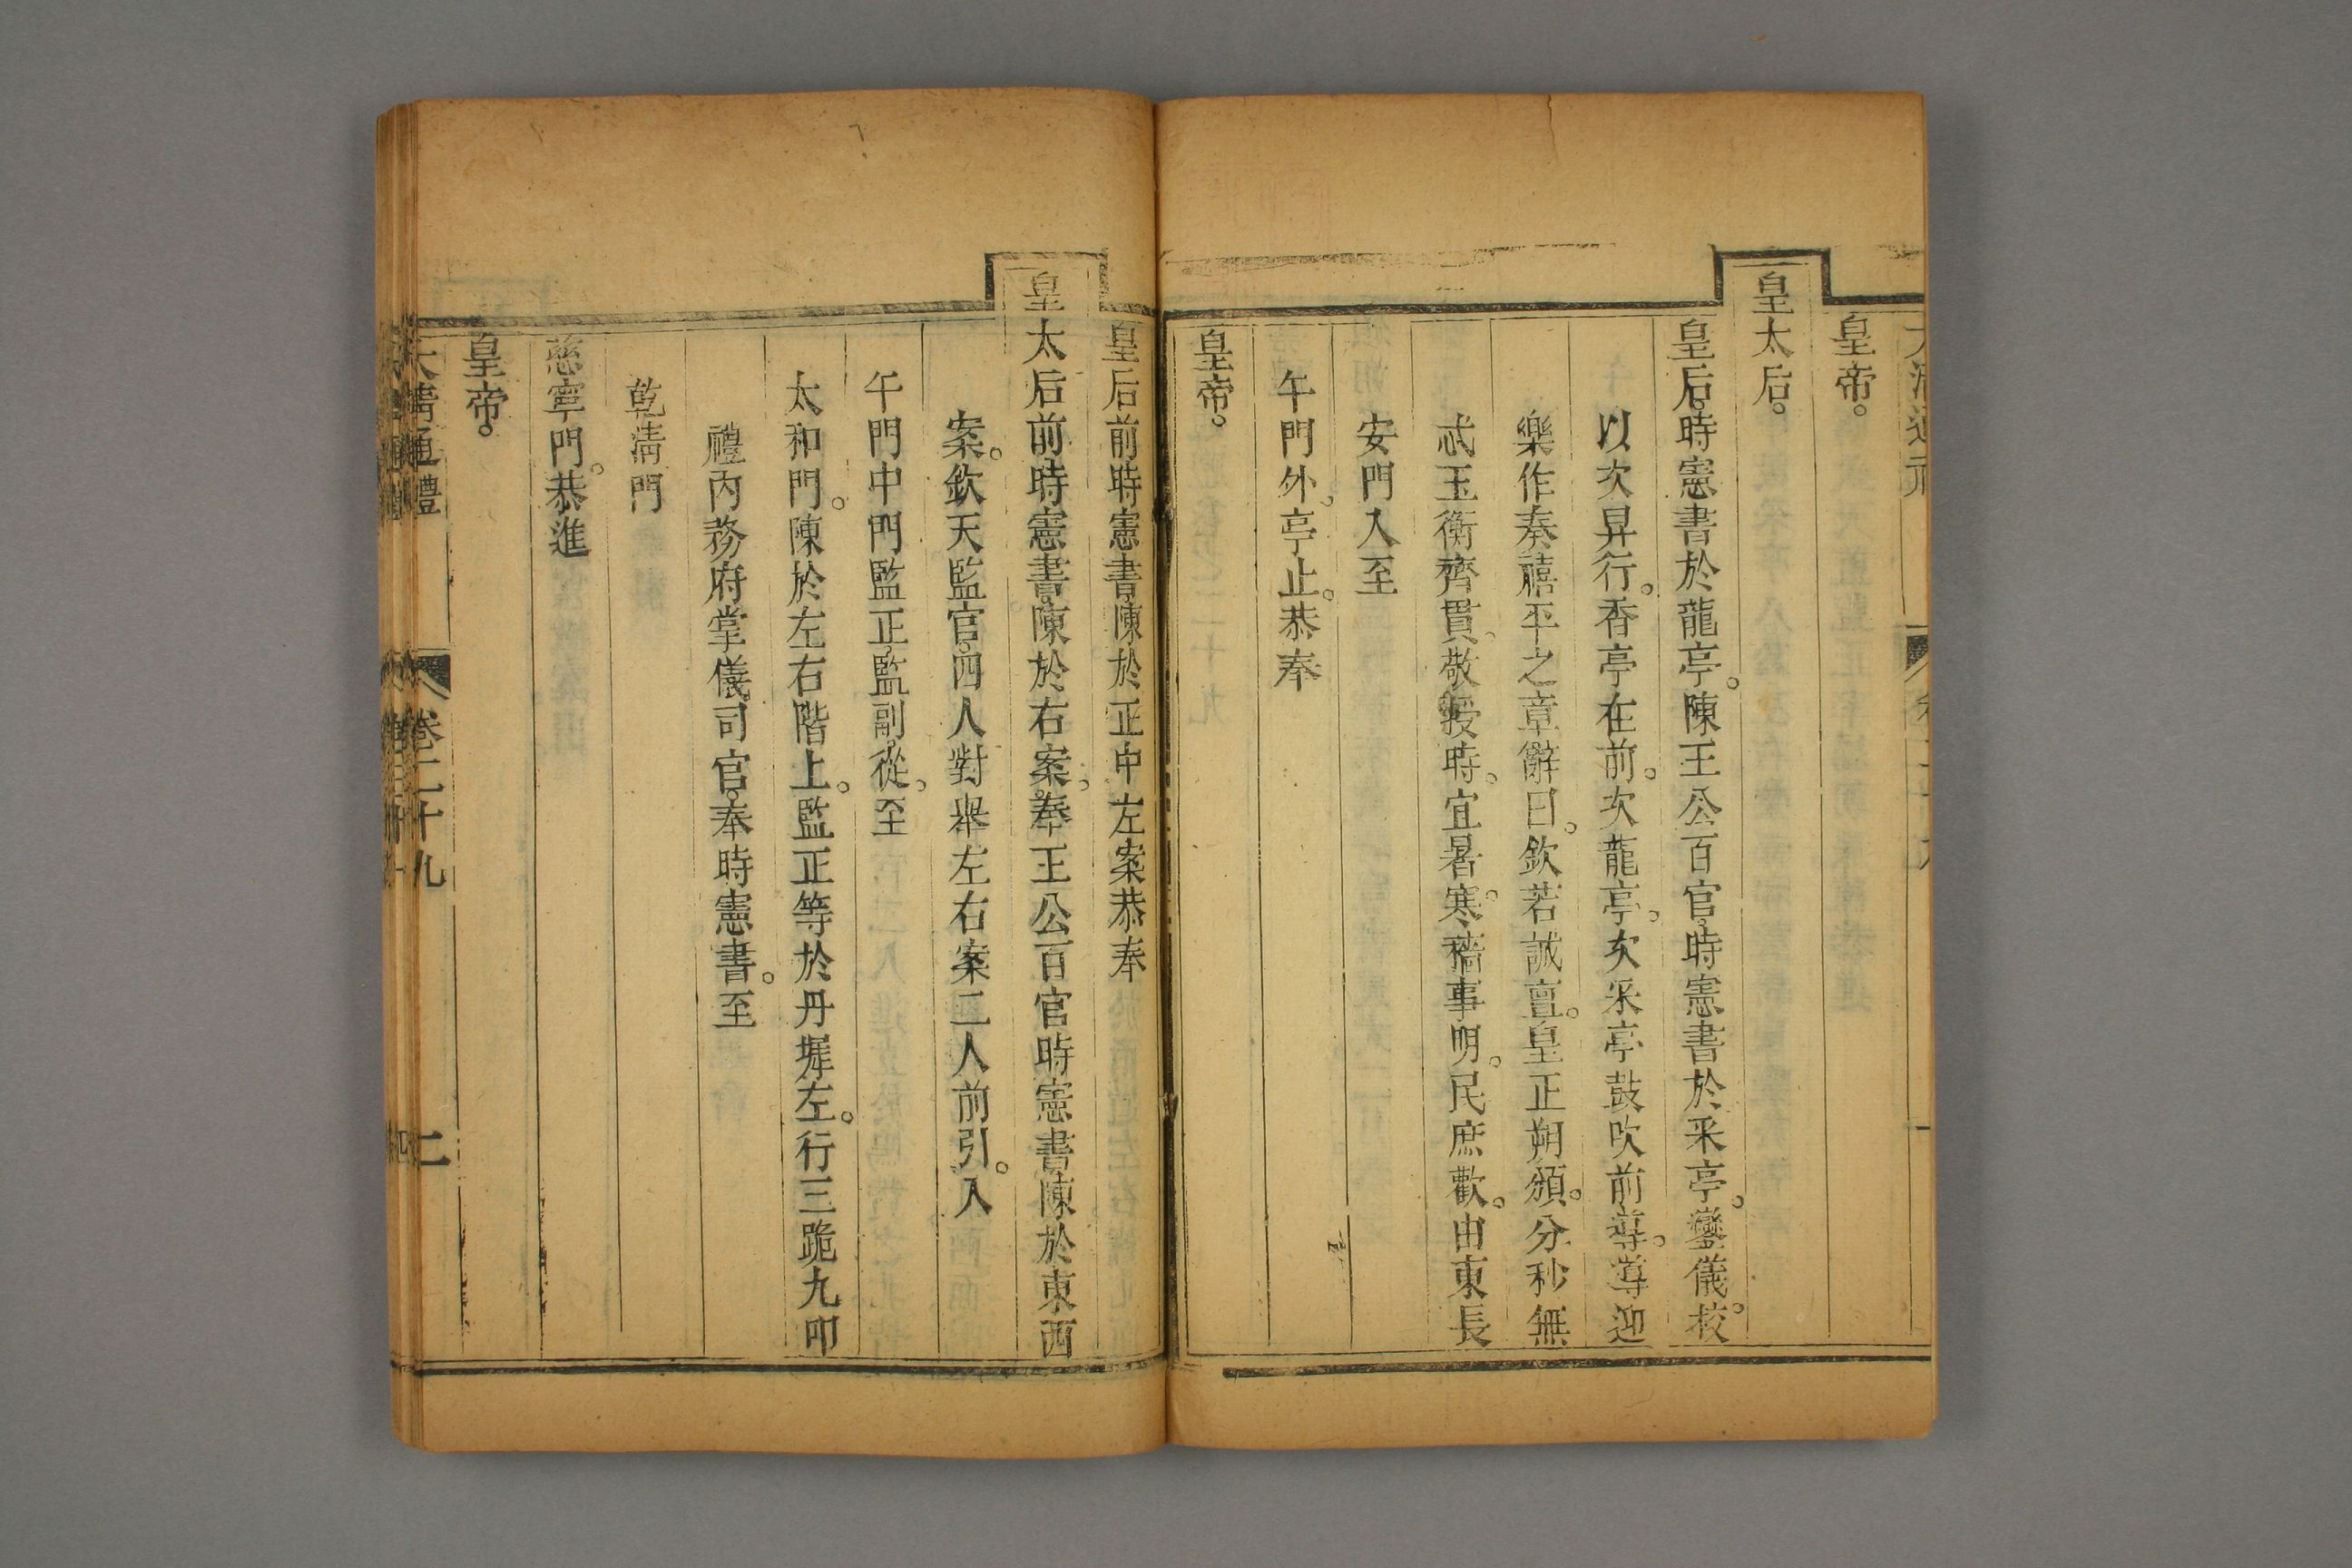 皇帝。
皇太后。
皇后。時憲書於龍亭。陳王公百官。時憲書於采亭。鑾儀校。
以次昇行。香亭在前。次龍亭。次采亭鼓吹前導。導迎
樂作奏禧平之章辭曰。欽若誠亶。皇正朔頒。分秒無
忒玉衡齊貫。敬授時。宜暑寒。穡事明。民庶歡。由東長
安門入至
午門外。亭止。恭奉
皇帝。
皇后前時憲書。陳於正中左案恭奉
皇太后前時憲書。陳於右案。奉王公百官時憲書陳於東西
案。欽天監官。四人對舉左右案二人前引。入
午門中門監正。監副。從。至
太和門。陳於左右階上。監正等於丹墀左。行三跪九叩
禮內務府掌儀司官。奉時憲書。至
乾淸門
慈寧門。恭進
皇帝。
大淸通禮 卷二十九 二